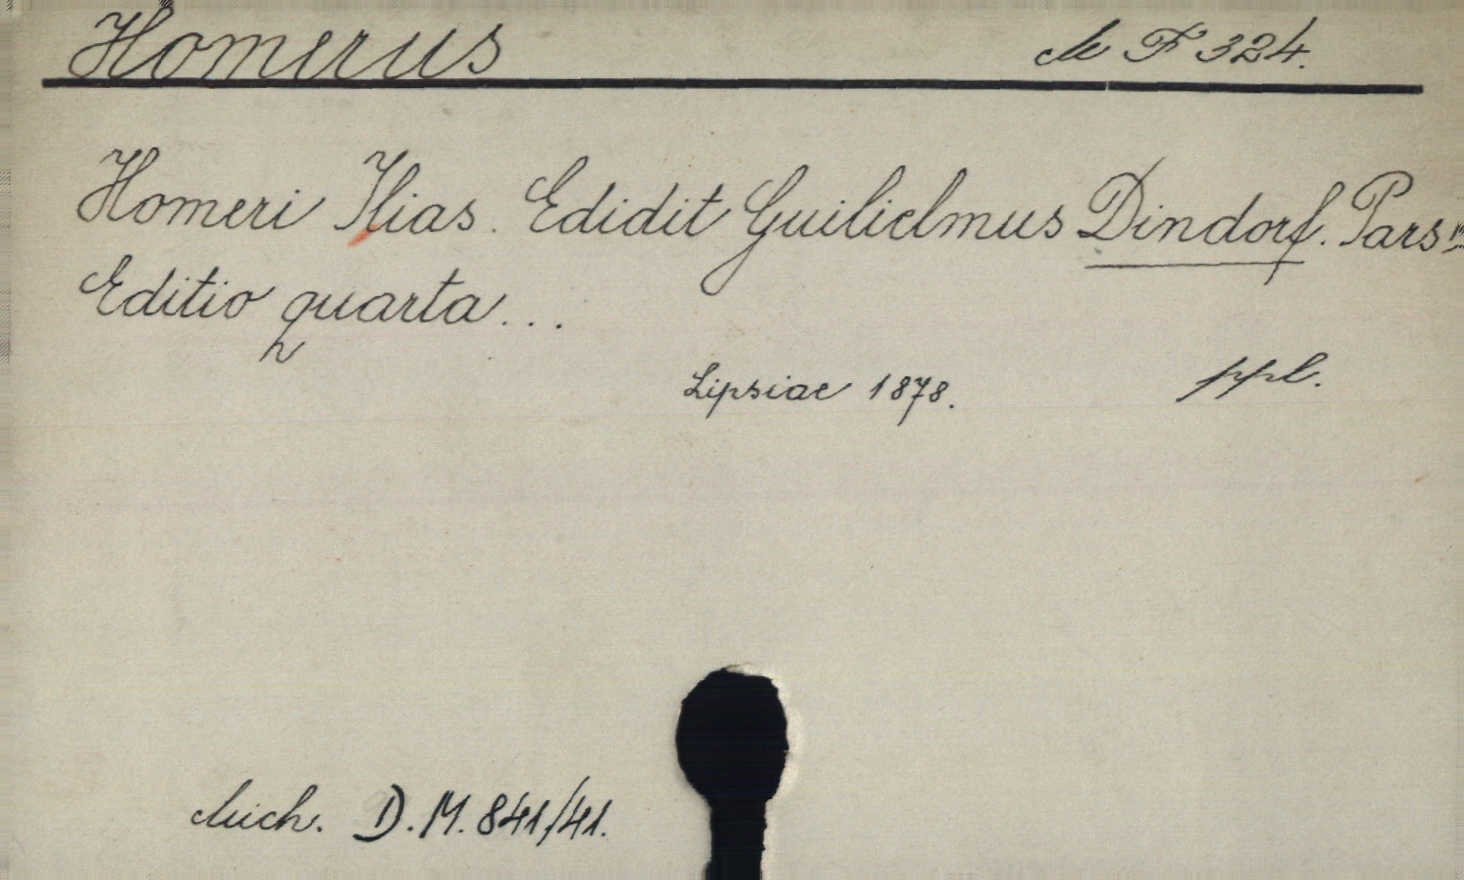 Homerus M F 324.
Homeri Ilias. Edidit Guilielmus Dindorf. Pars
Editio quarta...
Lipsiae 1878. ppl.
Mich. D. M. 841/41.